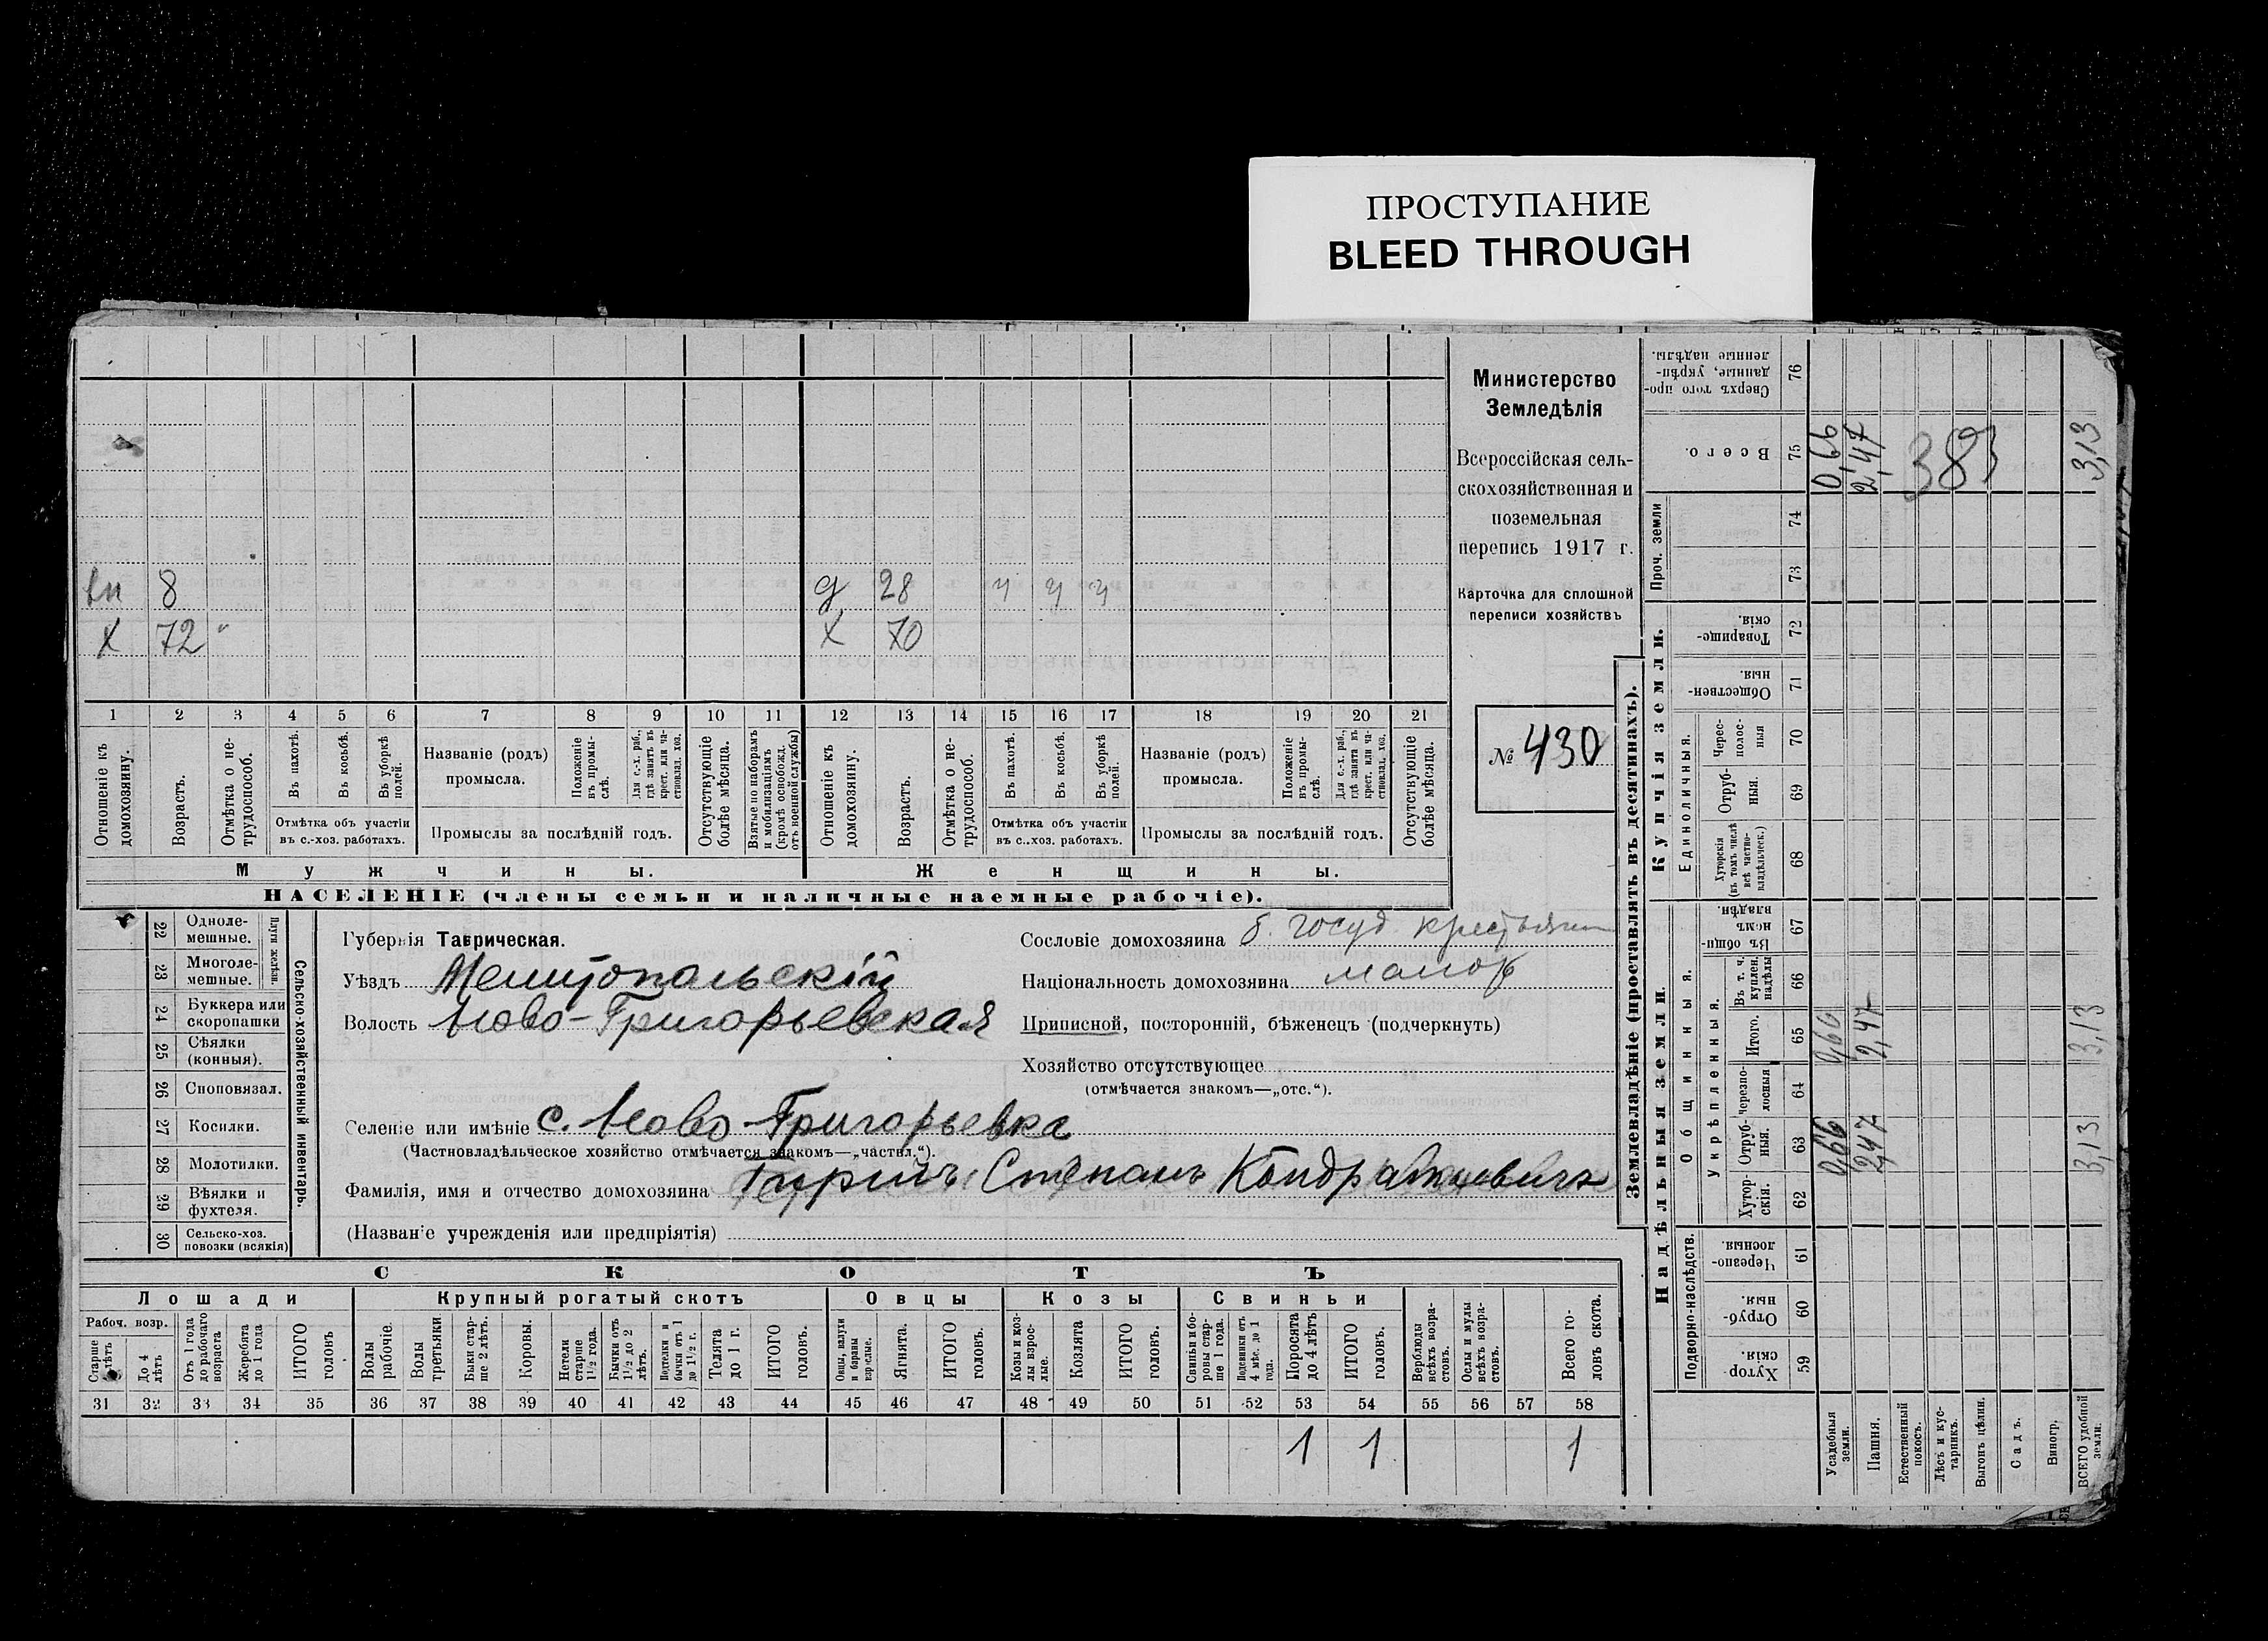 ПРОСТУПАНИЕ
BLEED THROUGH
Министерство
Земледѣлія
Всероссійская сель-
скохозяйственная и
поземельная
перепись 1917 г.
Карточка для сплошной
переписи хозяйствъ
№ 430
вн 8 д 28 ч ч ч
х 72 " х 70
1 2 3 4 5 6 7 8 9 10 11 12 13 14 15 16 17 18 19 20 21
Отношеніе къ домохозяину.
Возрастъ.
Отмѣтка о не-трудоспособ.
Въ пахотѣ.
Въ косьбѣ.
Въ уборкѣ полей.
Отмѣтка объ участіи въ с.-хоз. работахъ.
Названіе (родъ) промысла.
Положеніе въ промы-слѣ.
Для с.-х. раб., гдѣ занятъ въ крест. или ча-стновлад. хоз.
Промыслы за послѣдній годъ.
Отсутствующіе болѣе мѣсяца.
Взятые по наборамъ и мобилизаціямъ (кромѣ освобожд. отъ военной службы)
Отношеніе къ домохозяину.
Возрастъ.
Отмѣтка о не-трудоспособ.
Въ пахотѣ.
Въ косьбѣ.
Въ уборкѣ полей.
Отмѣтка объ участіи въ с..хоз. работахъ.
Названіе (родъ) промысла.
Положеніе въ промы-слѣ.
Для с.-х. раб., гдѣ занята въ крест. или ча-стновлад. хоз.
Промыслы за послѣдній годъ.
Отсутствующіе болѣе мѣсяца.
Мужчины. Женщины.
НАСЕЛЕНІЕ (члены семьи и наличные наемные рабочіе).
Сельско-хозяйственный инвентарь.
Плуги желѣзн.
22 Одноле-мешные.
23 Многоле-мешные.
24 Буккера или скоропашки
25 Сѣялки (конныя).
26 Сноповязал.
27 Косилки.
28 Молотилки.
29 Вѣялки и фухтеля.
30 Сельско-хоз. повозки (всякія)
Губернія Таврическая.
Уѣздъ Мелитопольскій
Волость Ново-Григорьевская
Селеніе или имѣніе с. Ново-Григорьевка
(Частновладѣльческое хозяйство отмѣчается знакомъ—„частвл.“).
Фамилія, имя и отчество домохозяина Степанъ Кондратьевичъ
(Названіе учрежденія или предпріятія)
Сословіе домохозяина б. госуд. крестьянин
Національность домохозяина малор
Приписной, посторонній, бѣженецъ (подчеркнуть)
Хозяйство отсутствующее
(отмѣчается знакомъ—„отс.“).
СКОТЪ
Лошади Крупный рогатый скотъ Овцы Козы Свиньи
Рабоч. возр.
Старше 4 лѣтъ
До 4 лѣтъ
Отъ 1 года до рабочаго возраста
Жеребята до 1 года
ИТОГО головъ
Волы рабочіе.
Волы третьяки
Быки стар-ше 2 лѣтъ.
Коровы.
Нетели старше 1½ года.
Бычки отъ 1½ до 2 лѣтъ.
Подтелки и бычки отъ 1 до 1½ г.
Телята до 1 г.
ИТОГО головъ.
Овцы, валухи и бараны взрослые.
Ягнята.
ИТОГО головъ.
Козы и коз-лы взрос-лые.
Козлята
ИТОГО головъ.
Свиньи и бо-ровы стар-ше 1 года.
Подсвинки отъ 4 мѣс. до 1 года.
Поросята до 4 лѣтъ
ИТОГО головъ.
Верблюды всѣхъ возра-стовъ.
Ослы и мулы всѣхъ возра-стовъ.
Всего го-ловъ скота.
31 32 33 34 35 36 37 38 39 40 41 42 43 44 45 46 47 48 49 50 51 52 53 54 55 56 57 58
1 1 1
Землевладѣніе (проставлять въ десятинахъ).
Купчія земли.
Надѣльныя земли.
Сверхъ того про-данные, укрѣп-ленные надѣлы. 76
Всего. 75
Проч. земли
74
73
Товарище-скія. 72
Обществен-ныя. 71
Единоличныя.
Черес-полос-ныя 70
Отруб-ныя. 69
Хуторскія (въ томъ числѣ всѣ частно-владѣльческ.) 68
Общинныя.
Въ общи-номъ владѣн. 67
Укрѣпленныя.
Въ т. ч. куплен. надѣлы 66
Итого. 65
Черезпо-лосныя 64
Отруб-ныя. 63
Хутор-скія. 62
Подворно-наслѣдств.
Черезпо-лосныя. 61
Отруб-ныя. 60
Хутор-скія. 59
Усадебныя земли.
Пашня.
Естественный покосъ.
Лѣсъ и кус-тарникъ.
Выгонъ цѣлин.
Садъ.
Виногр.
ВСЕГО удобной земли.
0,66 2,47 383 3,13
0,66 2,47 3,13
0,66 2,47 3,13